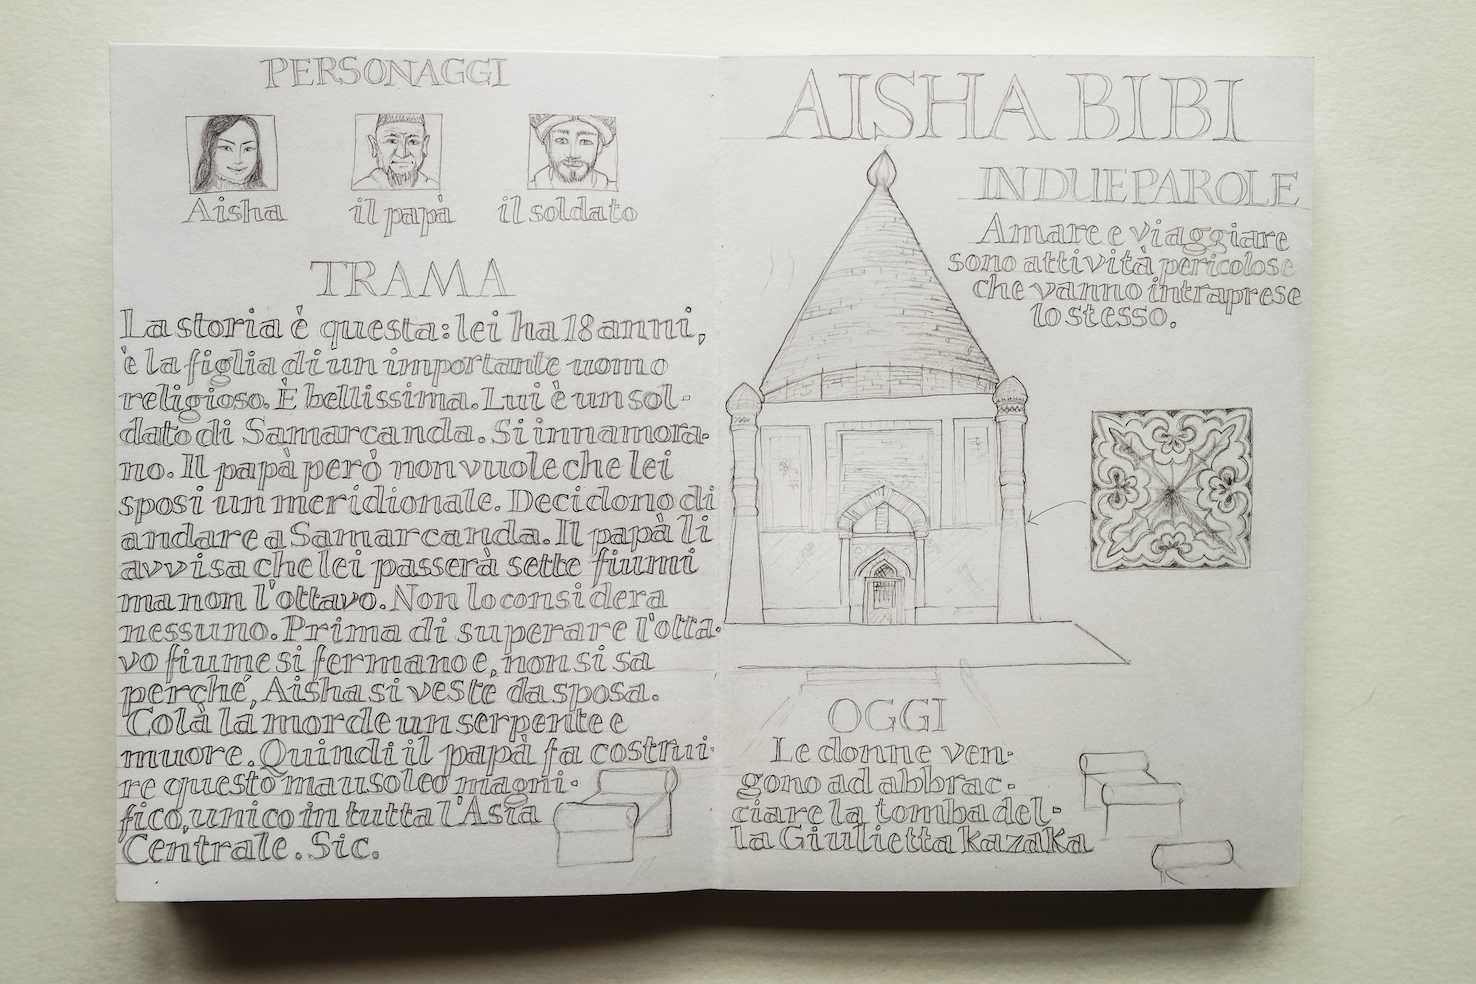 PERSONAGGI
Aisha
il papà
il soldato
TRAMA
La storia è questa: lei ha 18 anni,
è la figlia di un importante uomo
religioso. È bellissima. Lui è un sol-
dato di Samarcanda. Si innamora-
no. Il papà però non vuole che lei
sposi un meridionale. Decidono di
andare a Samarcanda. Il papà li
avvisa che lei passerà sette fiumi
ma non l'ottavo. Non lo considera
nessuno. Prima di superare l'otta-
vo fiume si fermano e, non si sa
perché, Aisha si veste da sposa.
Colà la morde un serpente e
muore. Quindi il papà fa costrui-
re questo mausoleo magni-
fico, unico in tutta l'Asia
Centrale. Sic.
AISHA BIBI
IN DUE PAROLE
Amare e viaggiare
sono attività pericolose
che vanno intraprese
lo stesso.
OGGI
Le donne ven-
gono ad abbrac-
ciare la tomba del-
la Giulietta kazaka